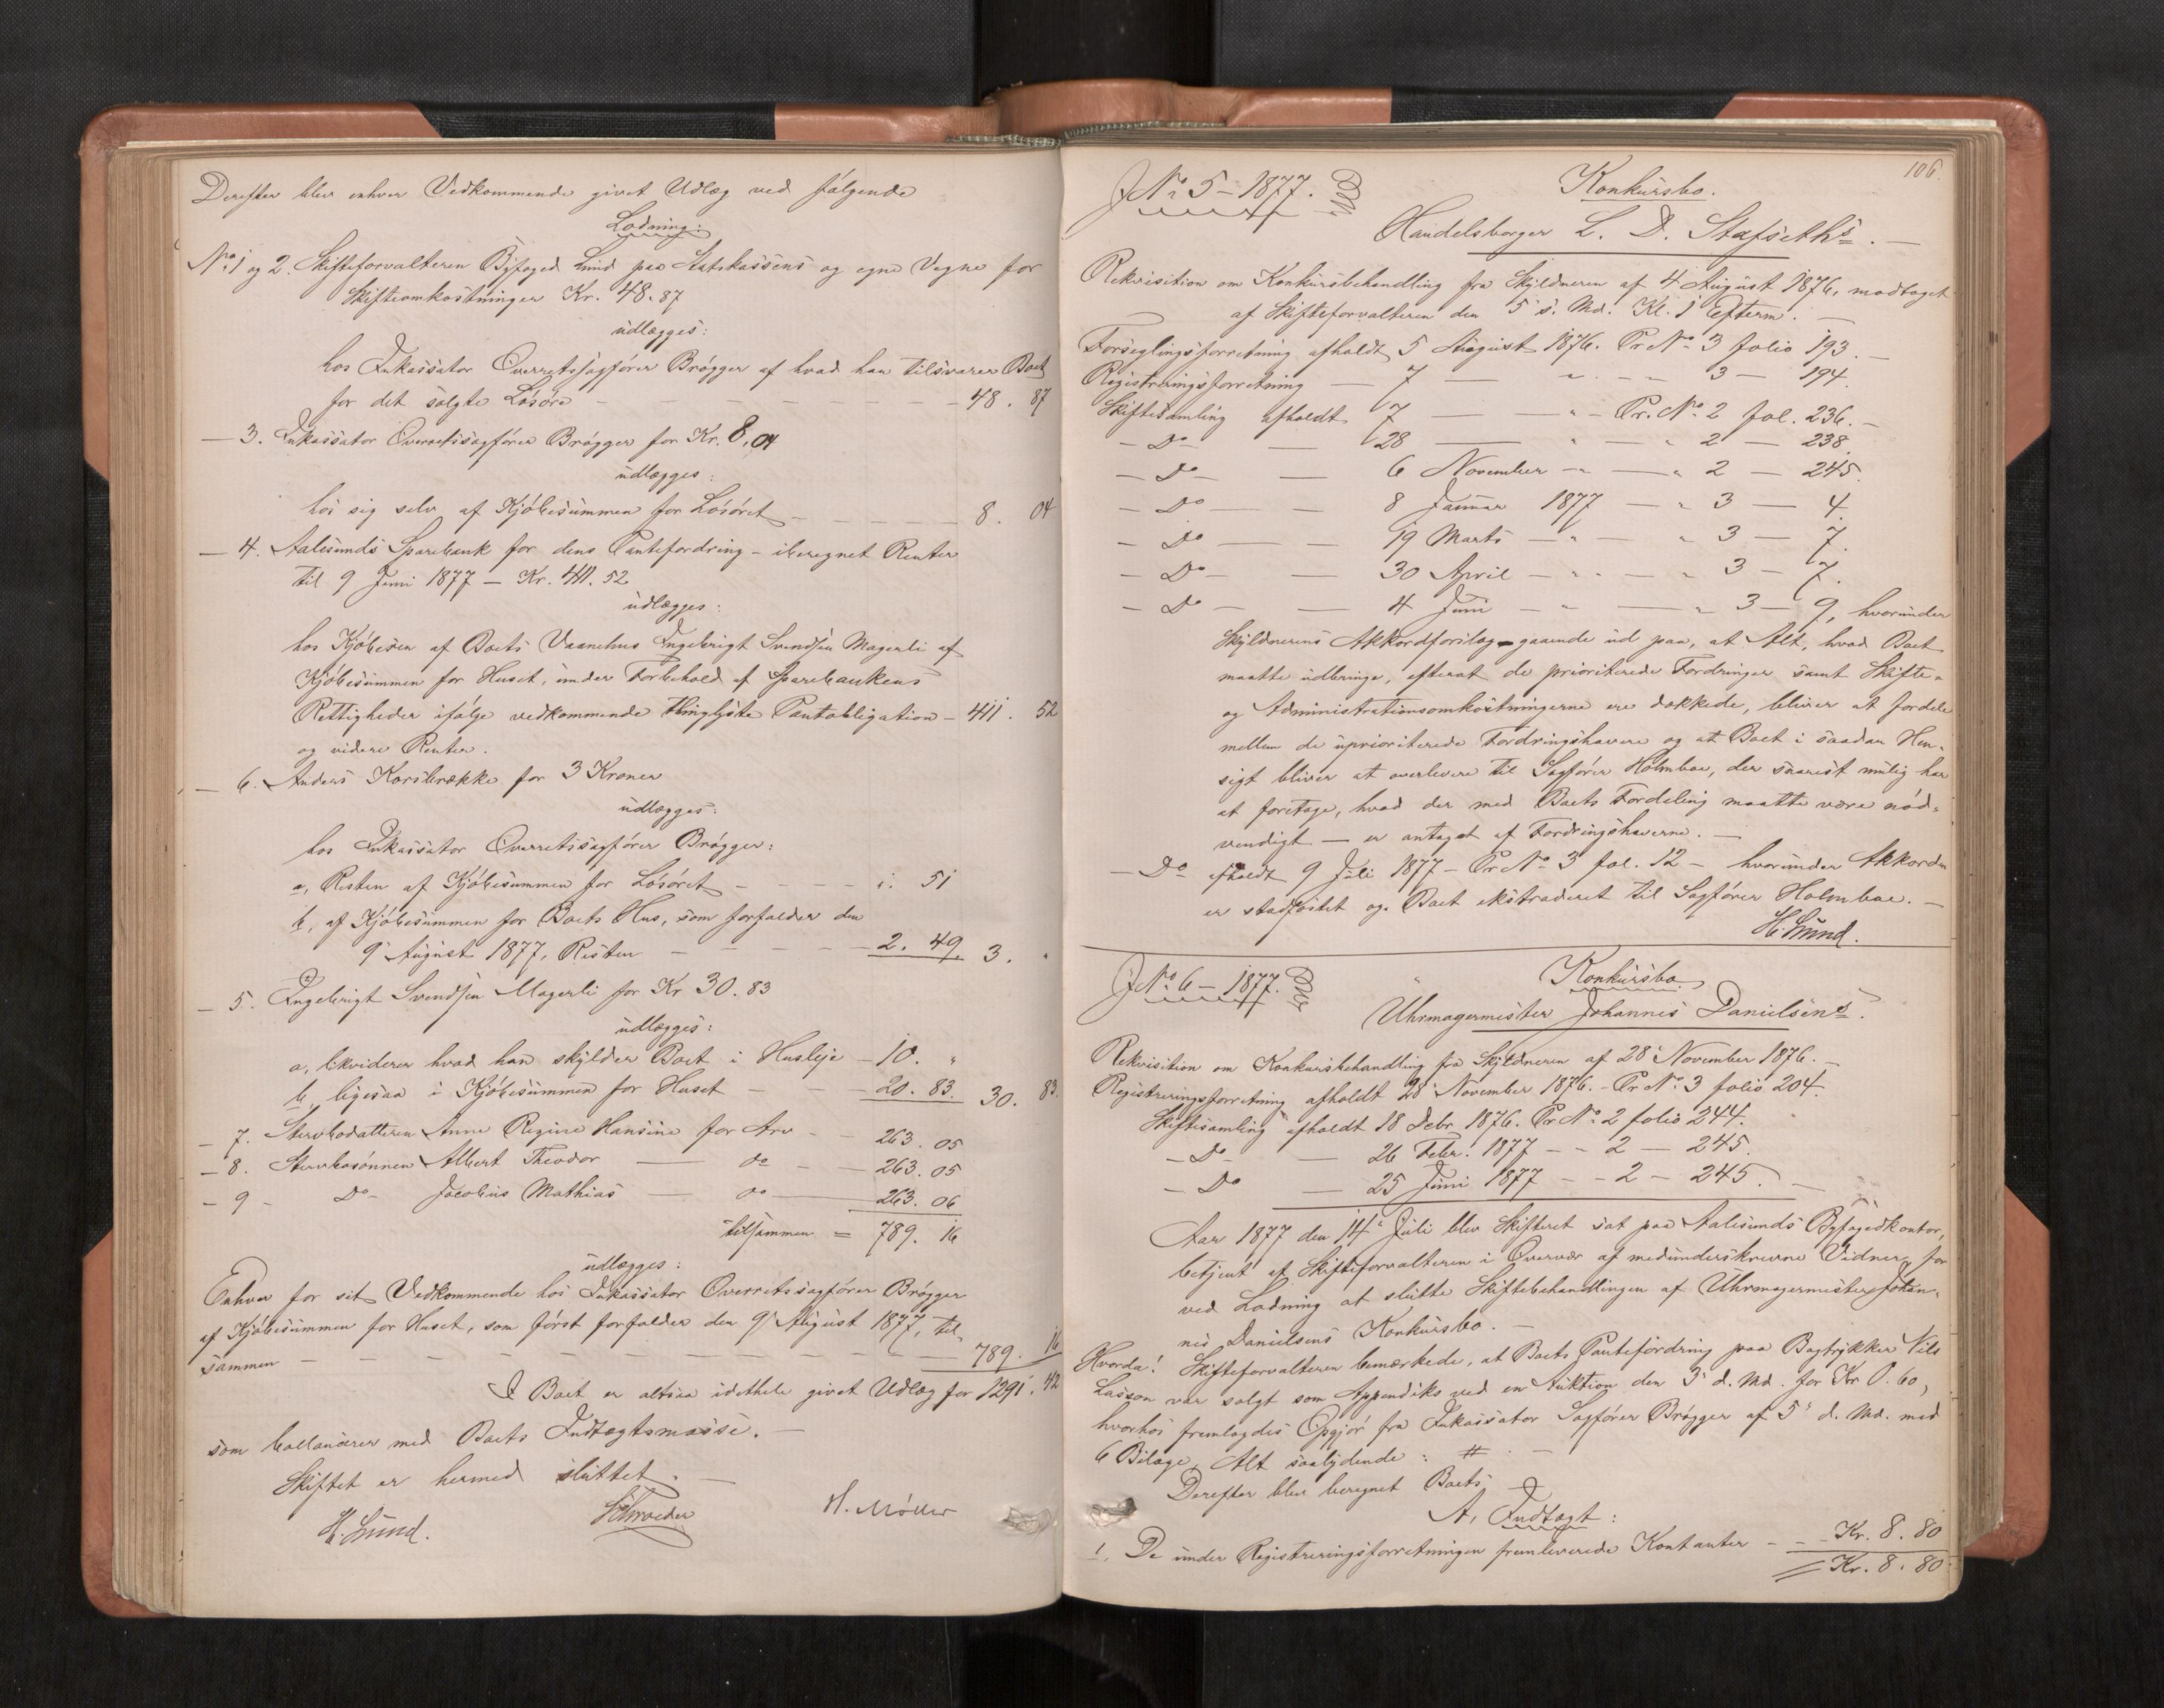 Derefter blev enhver Vedkommende givet Udlæg ved følgende
Lodning:
No 1 og 2. Skifteforvalteren Byfoged Lund paa Statskassens og egne Vegne for
Skifteomkostninger Kr. 48.87
udlægges:
hos Inkassator Overretssagfører Brøgger af hvad han tilsvarer Boet
for det solgte Løsøre - 48. 87
- 3. Inkassator Overretssagfører Brøgger for Kr. 8,04
udlægges:
hos sig selv af Kjøbesummen for Løsøret - 8. 04
- 4. Aalesunds Sparebank for dens Pantefordring - iberegnet Renter
til 9 Juni 1877 - Kr. 411.52
udlægges:
hos Kjøberen af Boets Vaanehus Ingebrigt Svendsen Magerli af
Kjøbesummen for Huset, under Forbehold af Sparebankens
Rettigheder ifølge vedkommende thinglyste Pantobligation - 411. 52
og videre Renter.
- 6. Anders Korsbrække for 3 Kroner
udlægges:
hos Inkassator Overretssagfører Brøgger:
a, Resten af Kjøbesummen for Løsøret - ". 51
b, af Kjøbesummen for Boets Hus, som forfalder den
9 August 1877, Resten - 2. 49. 3. "
- 5. Ingebrigt Svendsen Magerli for Kr 30.83
udlægges:
a, likviderer hvad han skylder Boet i Husleje - 10. "
b, ligesaa i Kjøbesummen for Huset - 20. 83. 30. 83.
- 7. Sterbodatteren Anne Regine Hansine for Arv - 263. 05
- 8. Sterbosønnen Albert Theodor - do - 263. 05
- 9 - Do - Jacobius Mathias - do - 263. 06
tilsammen = 789. 16
udlægges:
Enhver for sit Vedkommende hos Inkassator Overretssagfører Brøgger
af Kjøbesummen for Huset, som først forfalder den 9 August 1877, til-
sammen - 789. 16
I Boet er altsaa idethele givet Udlæg for 1291. 42
som ballancerer med Boets Indtægtsmasse.
Skiftet er hermed sluttet.
H. Lund. Schroeder H. Møller
106.
J No 5 - 1877.
Konkursbo.
Handelsborger L. D. Stafseths.
Rekvisition om Konkursbehandling fra Skyldneren af 4 August 1876, modtaget
af Skifteforvalteren den 5 s. Md. Kl. 1 Efterm.
Forseglingsforretning afholdt 5 August 1876. Pr No 3 folio 193.
Registreringsforretning - 7 - " - 3 - 194.
Skiftesamling afholdt 7 - " - Pr. No 2 fol. 236.
- Do - 28 - " - " 2 - 238.
- Do - 6 November - " - " 2 - 245.
- Do - 8 Januar 1877 - " 3 - 4.
- Do - 19 Marts - " - " 3 - 7.
- Do - 30 April - " - " 3 - 7.
- Do - 4 Juni - " - " 3 - 9, hvorunder
Skyldnerens Akkordforslag - gaaende ud paa, at Alt, hvad Boet
maatte udbringe, efterat de prioriterede Fordringer samt Skifte-
og Administrationsomkostningerne ere dækkede, bliver at fordele
mellem de uprioriterede Fordringshavere og at Boet i saadan Hen-
sigt bliver at overlevere til Sagfører Holmboe, der snarest mulig har
at foretage, hvad der med Boets Fordeling maatte være nød-
vendigt - er antaget af Fordringshaverne.
- Do afholdt 9 Juli 1877 - Pr No 3 fol. 12 - hvorunder Akkorden
er stadfæstet og Boet ekstraderet til Sagfører Holmboe.
H. Lund.
J No 6 - 1877.
Konkursbo
Uhrmagermester Johannes Danielsens.
Rekvisition om Konkursbehandling fra Skyldneren af 28 November 1876.
Registreringsforretning afholdt 28 November 1876. - Pr No 3 folio 204.
Skiftesamling afholdt 18 Debr 1876. Pr No 2 folio 244.
- Do - 26 Febr. 1877 - - 2 - 245.
- Do - 25 Juni 1877 - - 2 - 245.
Aar 1877 den 14 Juli blev Skifteret sat paa Aalesunds Byfogedkontor,
betjent af Skifteforvalteren i Overvær af medunderskrevne Vidner, for
ved Lodning at slutte Skiftebehandlingen af Uhrmagermester Johan-
nes Danielsens Konkursbo.
Hvorda: Skifteforvalteren bemærkede, at Boets Pantefordring paa Bogtrykker Nils
Lasson var solgt som Appendiks ved en Auktion den 3 d. Md. for Kr 0.60,
hvorhos fremlagdes Opgjør fra Inkassator Sagfører Brøgger af 5 d. Md. med
6 Bilage, Alt saalydende: #
Derefter blev beregnet Boets
A, Indtægt:
1, De under Registreringsforretningen fremleverede Kontanter - Kr. 8. 80
Kr. 8. 80